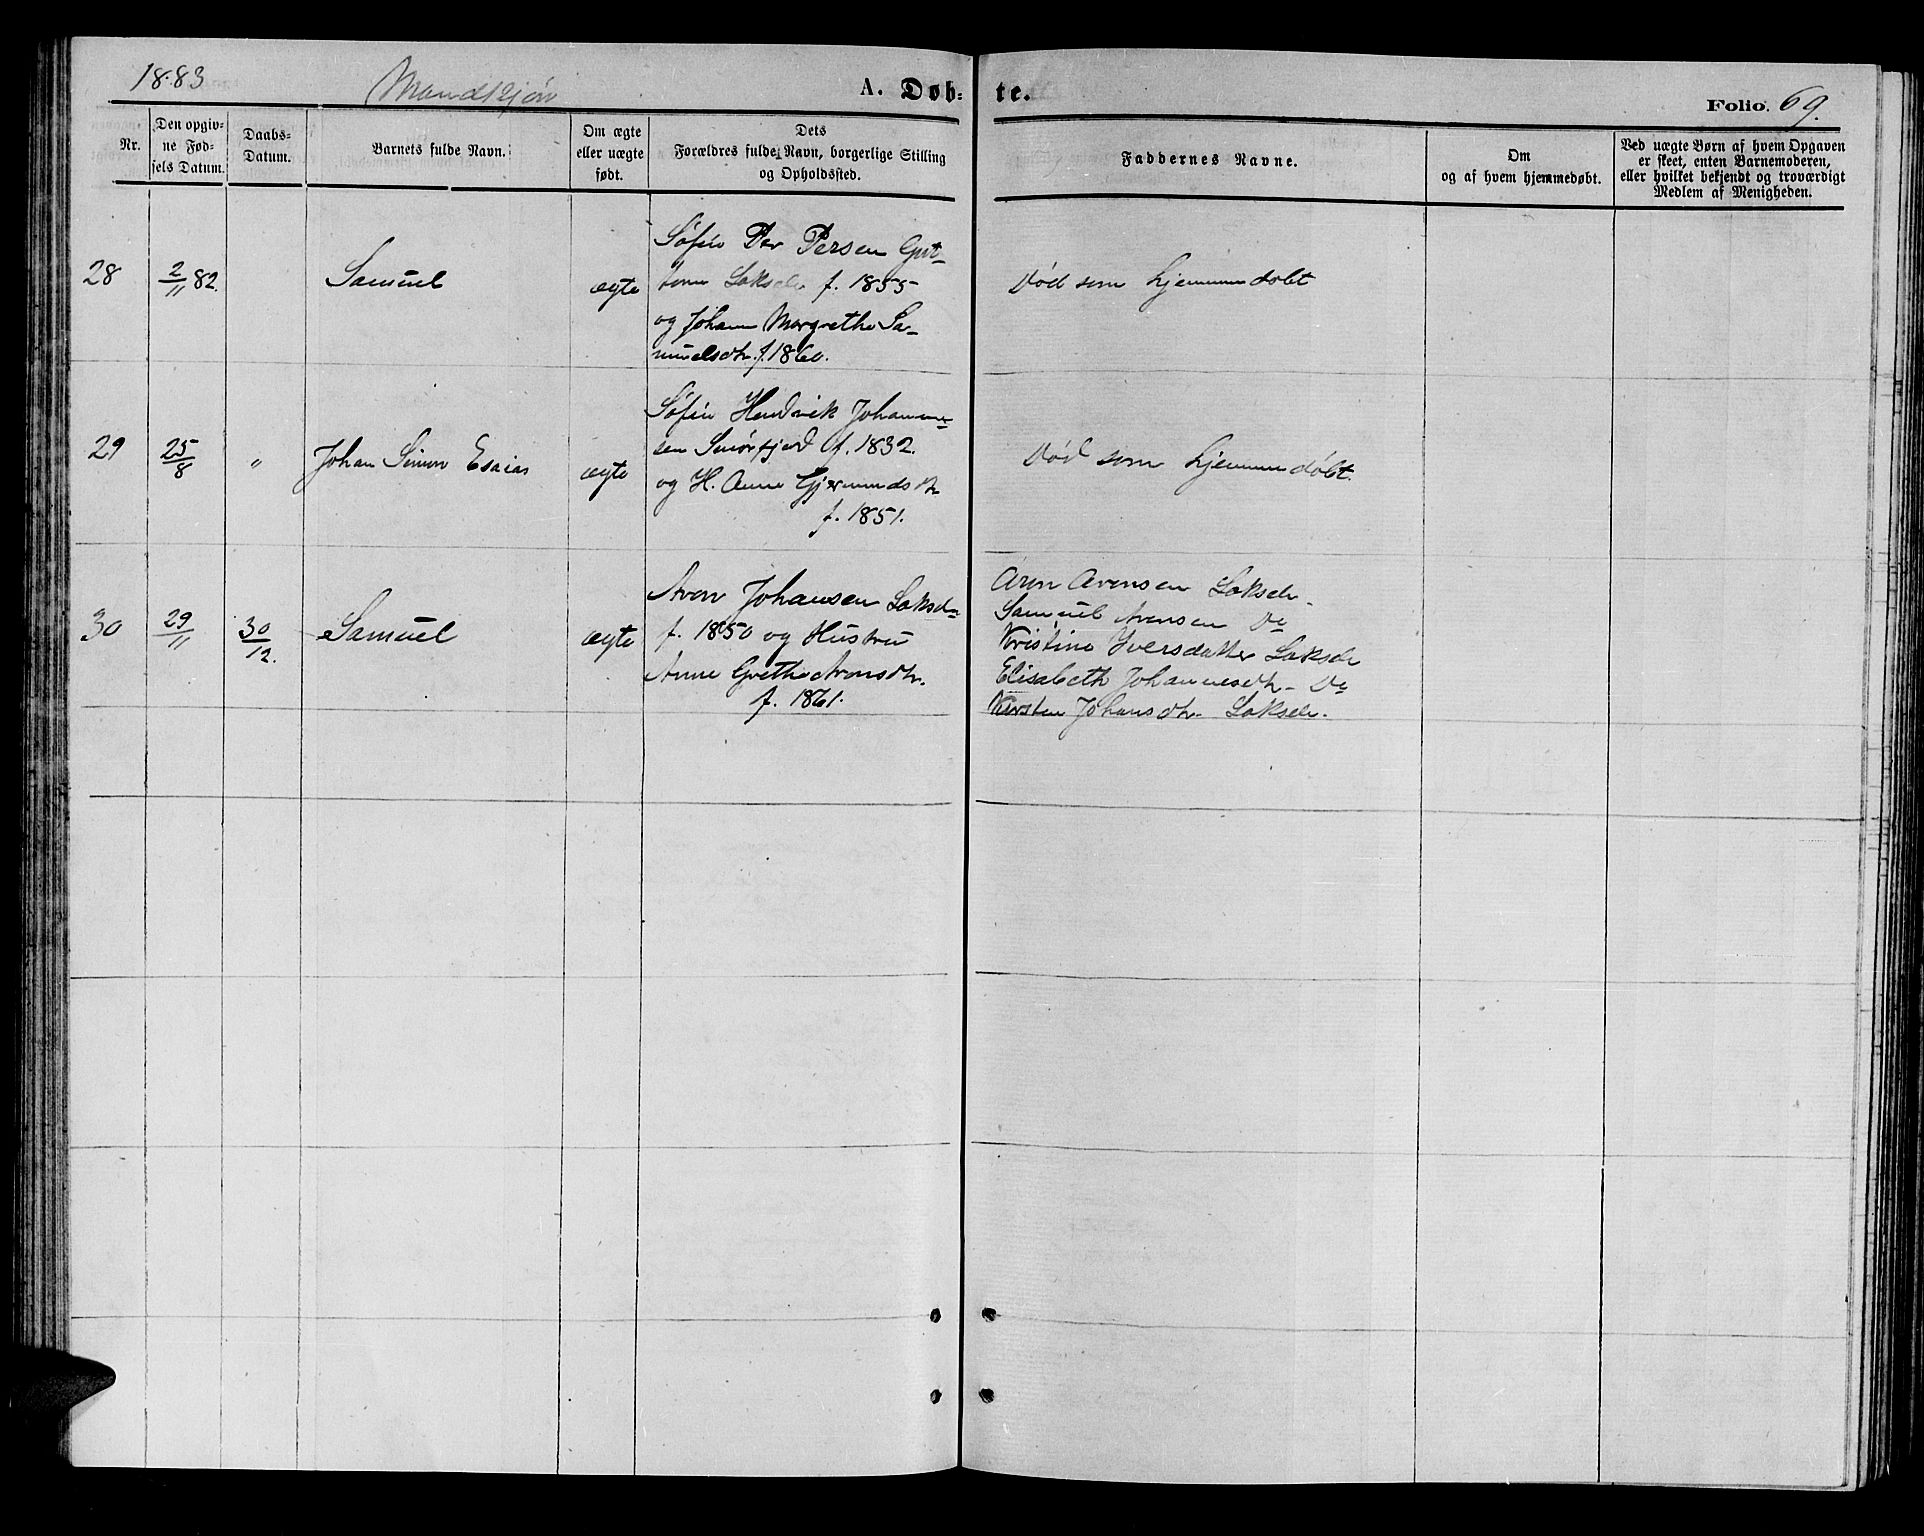 1883 Mandkjøn A. Døbte. Folio. 69.
Nr.
Den opgivne Fødsels Datum.
Daabs-Datum.
Barnets fulde Navn.
Om ægte eller uægte født.
Dets Forældres fulde Navn, borgerlige Stilling og Opholdssted.
Faddernes Navne.
Om og af hvem hjemmedøbt.
Ved uægte Børn af hvem Opgaven er skeet, enten Barnemoderen, eller hvilket bekjendt og troværdigt Medlem af Menigheden.
28 2/11 82. Samuel ægte
Søfin Per Persen
f. 1855
og Johan Margrethe Sa-
muelsdtr. f. 1860.
Død som hjemmedøbt
29 25/8 " Johan Simon Esaias ægte
Søfin Hendrik Johanne-
sen Smørfjord f. 1832.
og H. Anne Gjermundsdtr
f. 1851.
Død som hjemmedøbt.
30 29/11 30/12. Samuel ægte
Aron Johansen Lakselv
f. 1850 og Hustru
Anne Grethe Aronsdtr.
f. 1861.
Aron Aronsen Lakselv
Samuel Aronsen Do
Kristine Iversdatter Lakselv
Elisabeth Johannesdtr. Do
Kirsten Johansdtr. Lakselv.